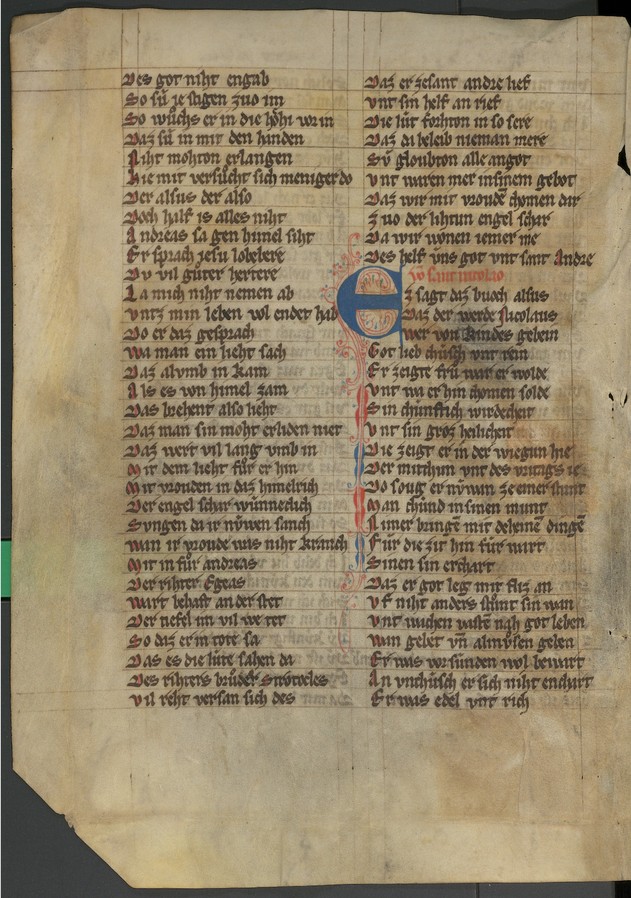 Des got niht engab
So sú ie stigen zuo im
So wůchs er in die hőhi vor in
Daz sú in mit den handen
Niht mohton erlangen
Hie mit versůcht sich meniger do
Der alsus der also
Doch half is alles niht
Andreas sa gen himel siht
Er sprach jesu lobebere
Dv vil gůter hertere
La mich niht nemen ab
vntz min leben vol endet hab
Do er daz gesprach
wa man ein lieht sach
Daz alvmb in kam
Als es von himel zam
Das brehent also lieht
Daz man sin moht erliden niet
Daz wert vil lang vmb in
Mit dem lieht fůr er hin
Mit vrouden in daz himelrich
Der engel schar wúnneclich
Svngen da ir núwen sanch
wan ir vroude was niht kranch
Mit in fůr andreas
Der rihter Egeas
wart behaft an der stet
Der tiefel im vil we tet
So daz er in tote sa
Das es die lúte sahen da
Des rihters brůder Strotocles
vil reht versan sich des
Daz er zesant andre lief
vnt sin helf an rief
Die lút forhton in so sere
Daz da beleib nieman mere
Sú gloubton alle an got
vnt waren mer in sinem gebot
Daz wir mit vroude chomen dar
zuo der lihtun engel schar
Da wir wonen iemer me
Des helf úns got vnt sant Andre
Vō sant nicolao
Ez sagt daz buoch alsus
Daz der werde Nicolaus
wer von kindes gebein
Got lieb chúsch vnt rein
Er zeigte frů war er wolde
vnt wa er hin chomen solde
Sin chúnftich wirdecheit
vnt sin groz heilicheit
Die zeigt er in der wiegun hie
Der mitchun vnt des vritags ie
Do soug er núwan ze einer stunt
Man chúnd in sinen munt
Nimer bringē mit deheinē dingē
Fúr die zit hin fúr wart
Sinen sin er chart
Daz er got leg mit fliz an
vf niht anders stůnt sin wan
vnt wachen vastē nah got leben
wan gebet vn̄ almůsen geben
Er was vor súnden wol bewart
An vnchúsch er sich niht enchart
Er was edel vnt rich